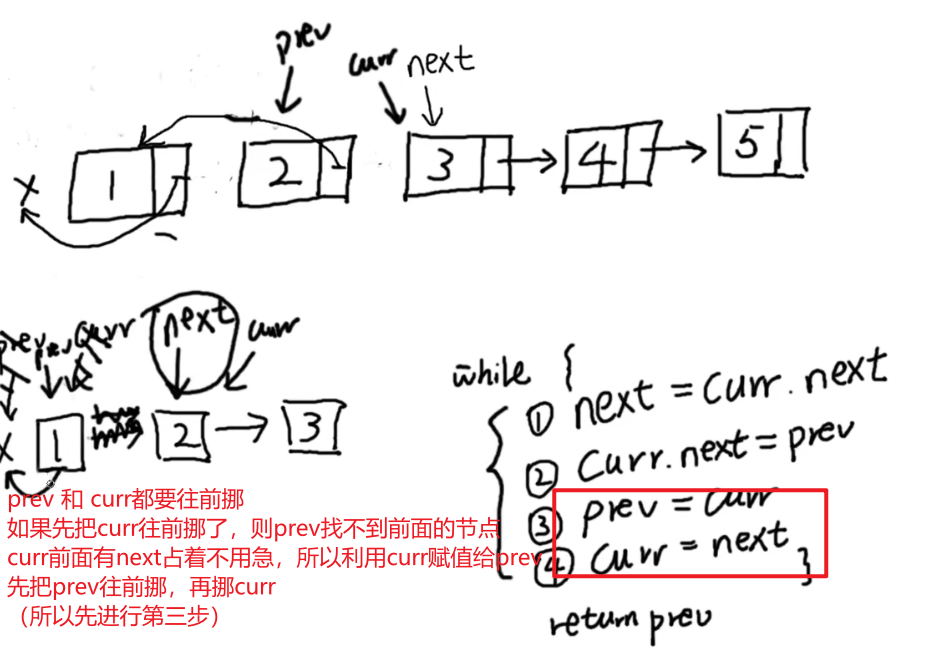 prev
curr next
1 2 3 4 5
X
prev prev curr next curr
X 1 2 3
while {
① next = curr.next
② Curr.next = prev
③ prev = curr
④ Curr = next }
return prev
prev 和 curr都要往前挪
如果先把curr往前挪了，则prev找不到前面的节点
curr前面有next占着不用急，所以利用curr赋值给prev
先把prev往前挪，再挪curr
（所以先进行第三步）